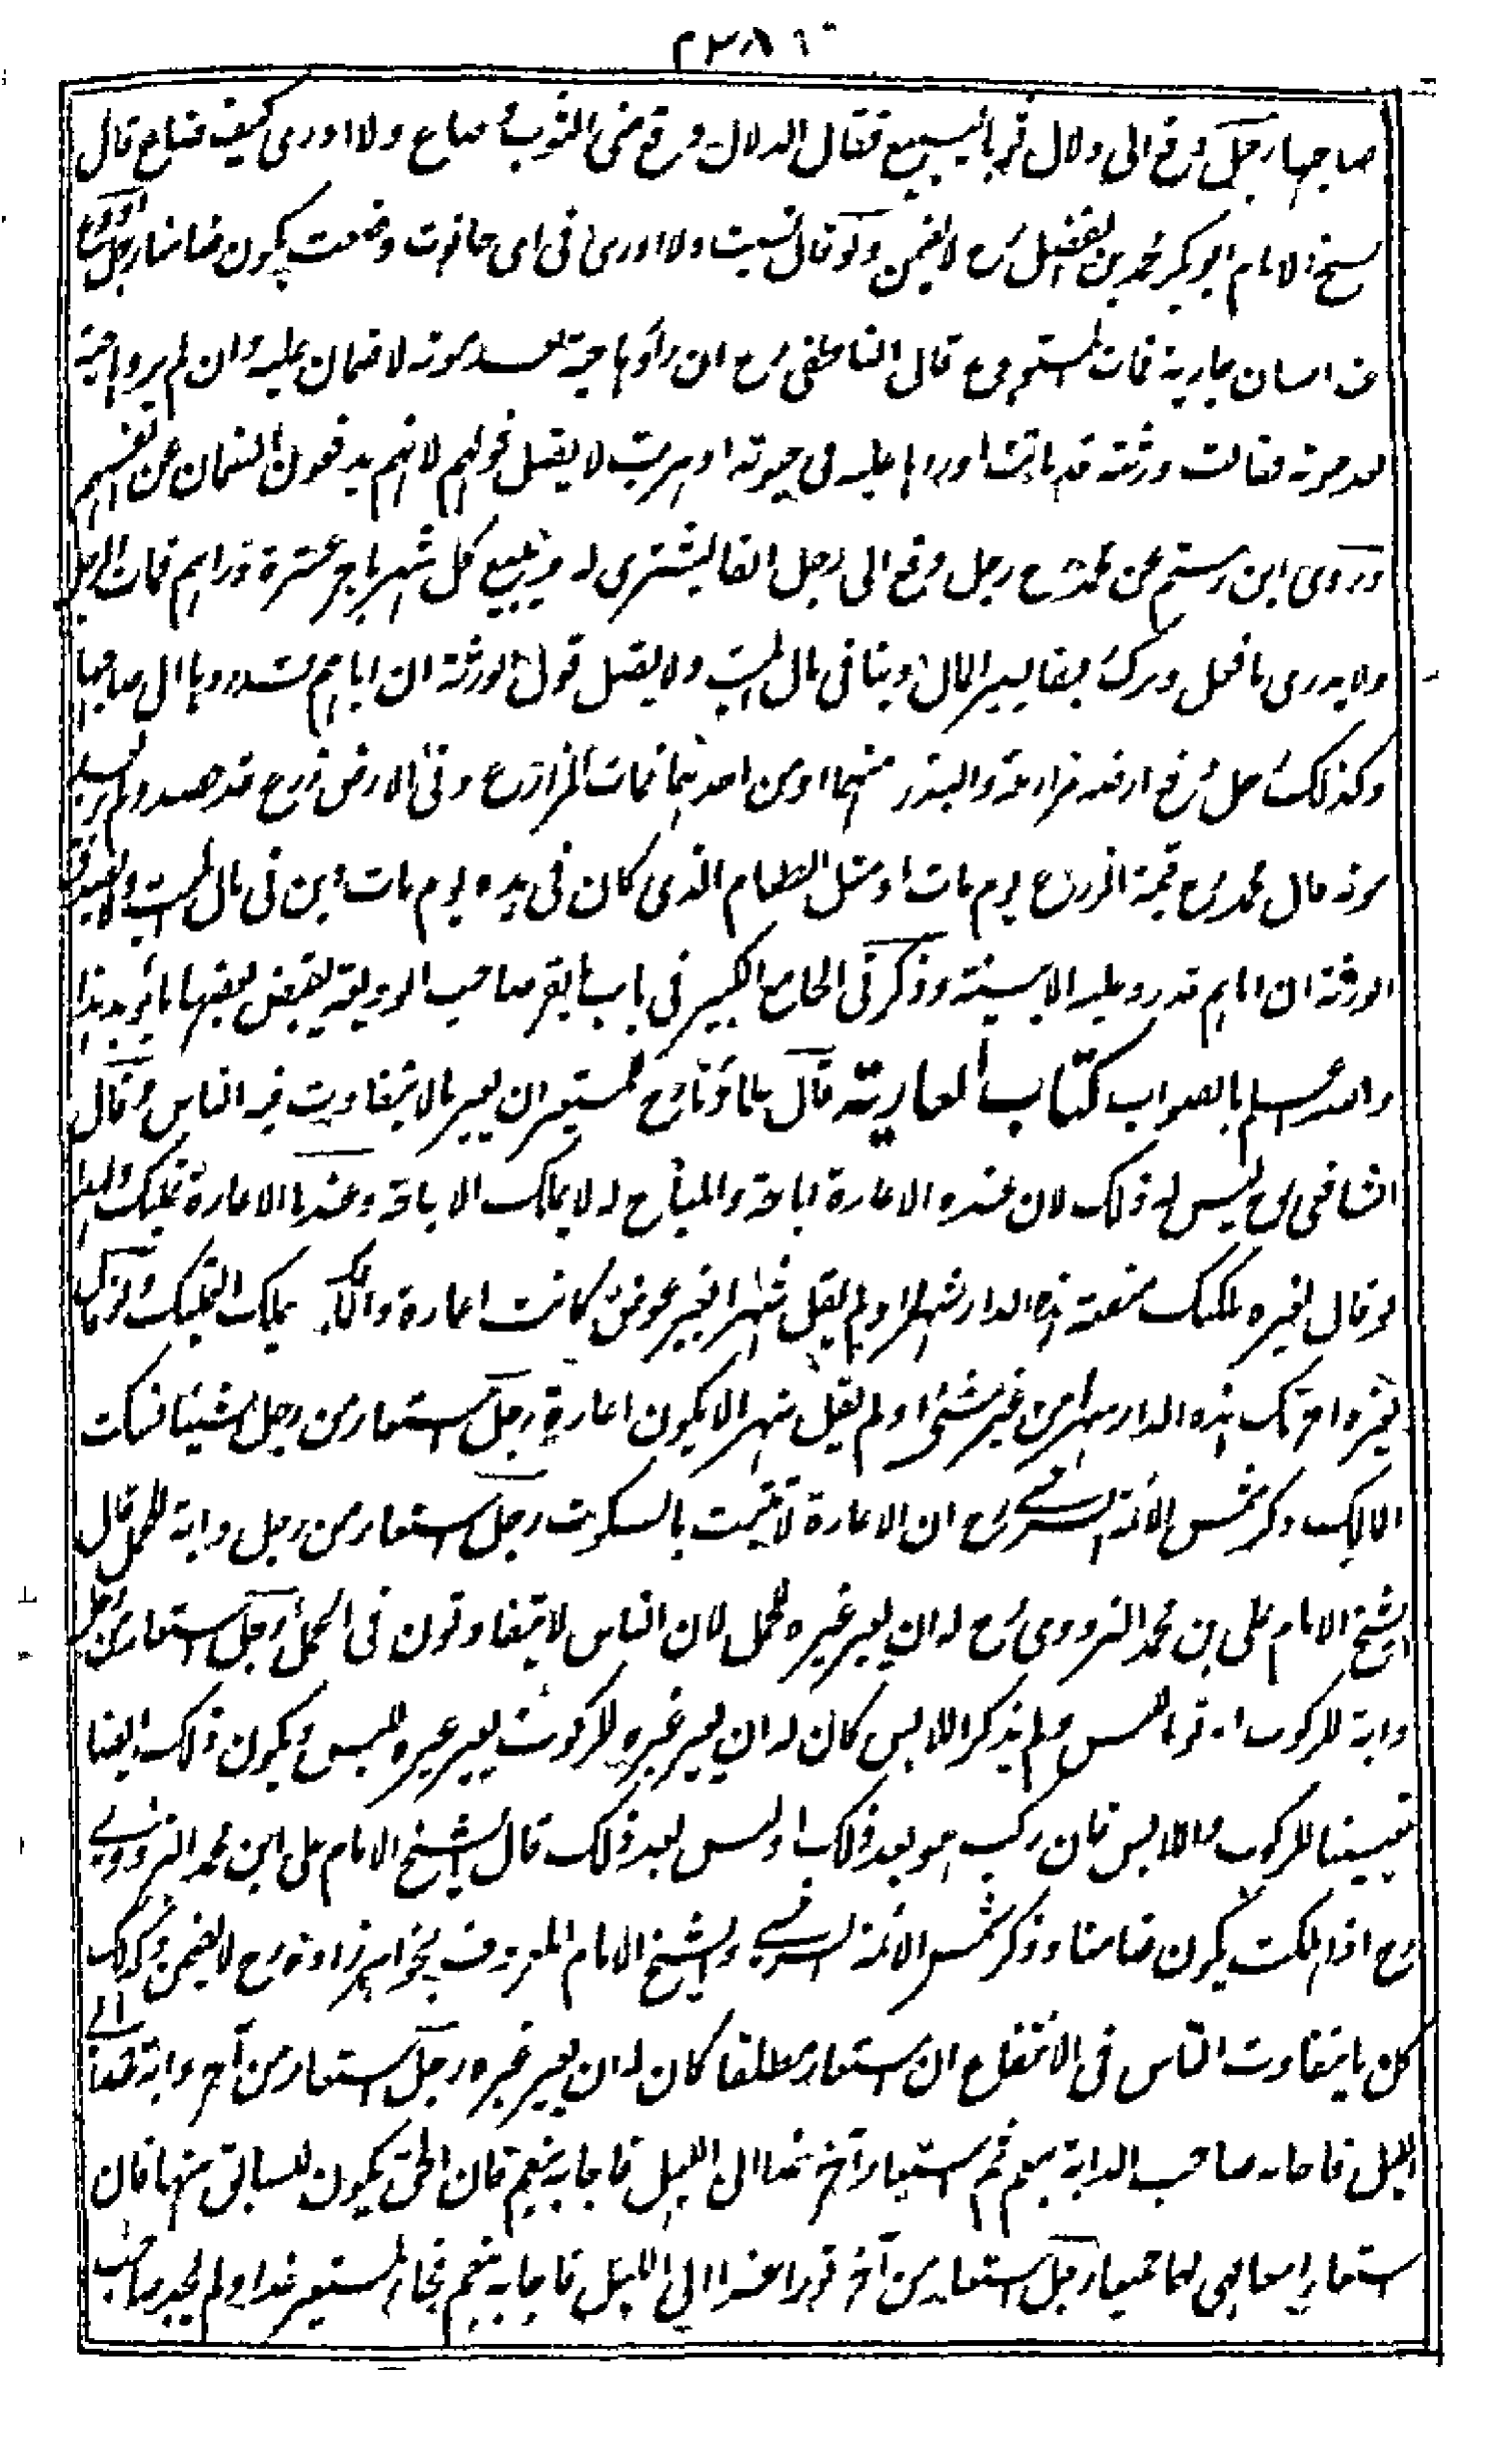 صاحبها رجل دفع الى دلال ثوبا ليبيع فقال الدلال وقع منى الثوب وضاع ولا ادرى كيف ضاع قال
شيخ الامام ابو بكر محمد بن الفضل رح لا يضمن ولو قال نسيت ولا ادرى فى اى حانوت وضعت يكون ضامنا رجل اودع
عند انسان جارية فمات المستودع قال الناطفى رح ان رأوها حية بعد موته لا ضمان عليه وان لم يروها حية
بعد موته فقالت ورثته قد ماتت اوردها عليه فى حيوته او هربت لا يقبل قولهم لانهم يدفعون الضمان عن انفسهم
وروى ابن رستم عن محمد رح رجل دفع الى رجل الفا ليشترى له ويبيع كل شهر باجر عشرة دراهم فمات الرجل
ولا يدرى ما فعل وترك يصير المال دينا فى مال الميت ولا يقبل قول الورثة ان اباهم قد ردها الى صاحبها
وكذلك رجل دفع ارضه مزارعة والبذر منهما او من احدهما فمات المزارع وفى الارض زرع قد حصد ولم
موته قال محمد رح قيمة الزرع يوم مات او مثل الطعام الذى كان فى يده يوم مات دين فى مال الميت ولا يصدق
الورثة ان اباهم قد رد عليه الا ببينة وذكر فى الجامع الكبير فى باب ما يقر صاحب الوديعة بقبض بعضها ما يؤيد هذا
والله اعلم بالصواب كتاب العارية قال علماؤنا رح للمستعير ان يعير ما لا يتفاوت فيه الناس وقال
الشافعى رح ليس له ذلك لان عنده الاعارة اباحة والمباح له لا يملك الاباحة وعندنا الاعارة تمليك
لو قال لغيره ملكتك منفعة هذه الدار شهرا او لم يقل شهرا بغير عوض كانت اعارة والمالك يملك التمليك ولو قال
لغيره اجرتك هذه الدار شهرا من غير شئ او لم يقل شهرا لا يكون اعارة رجل استعار من رجل شيئا فسكت
المالك ذكر شمس الائمة السرخسى رح ان الاعارة لا تثبت بالسكوت رجل استعار من رجل دابة للحمل قال
الشيخ الامام على بن محمد البزدوى رح له ان يعير غيره للحمل لان الناس لا يتفاوتون فى الحمل رجل استعار من رجل
دابة للركوب او ثوبا للبس ولم يذكر اللابس كان له ان يعير غيره للركوب يعير غيره للبس ويكون ذلك ايضا
تعيينا للركوب واللابس فان ركب هو بعد ذلك او لبس بعد ذلك قال الشيخ الامام على ابن محمد البزدوى
رح اذا هلكت يكون ضامنا وذكر شمس الائمة السرخسى والشيخ الامام المعروف بخواهر زاده رح لا يضمن وكذلك
كل ما يتفاوت الناس فى الانتفاع ان استعار مطلقا كان له ان يعير غيره رجل استعار من آخر دابة غدا الى
الليل فاجابه صاحب الدابة بنعم ثم استعار آخر غدا الى الليل فاجابه بنعم فان الحق يكون للسابق منهما فان
استعارا معا فهى لهما جميعا رجل استعار من آخر ثورا غدا الى الليل فاجابه بنعم فجاء المستعير غدا ولم يجد صاحب